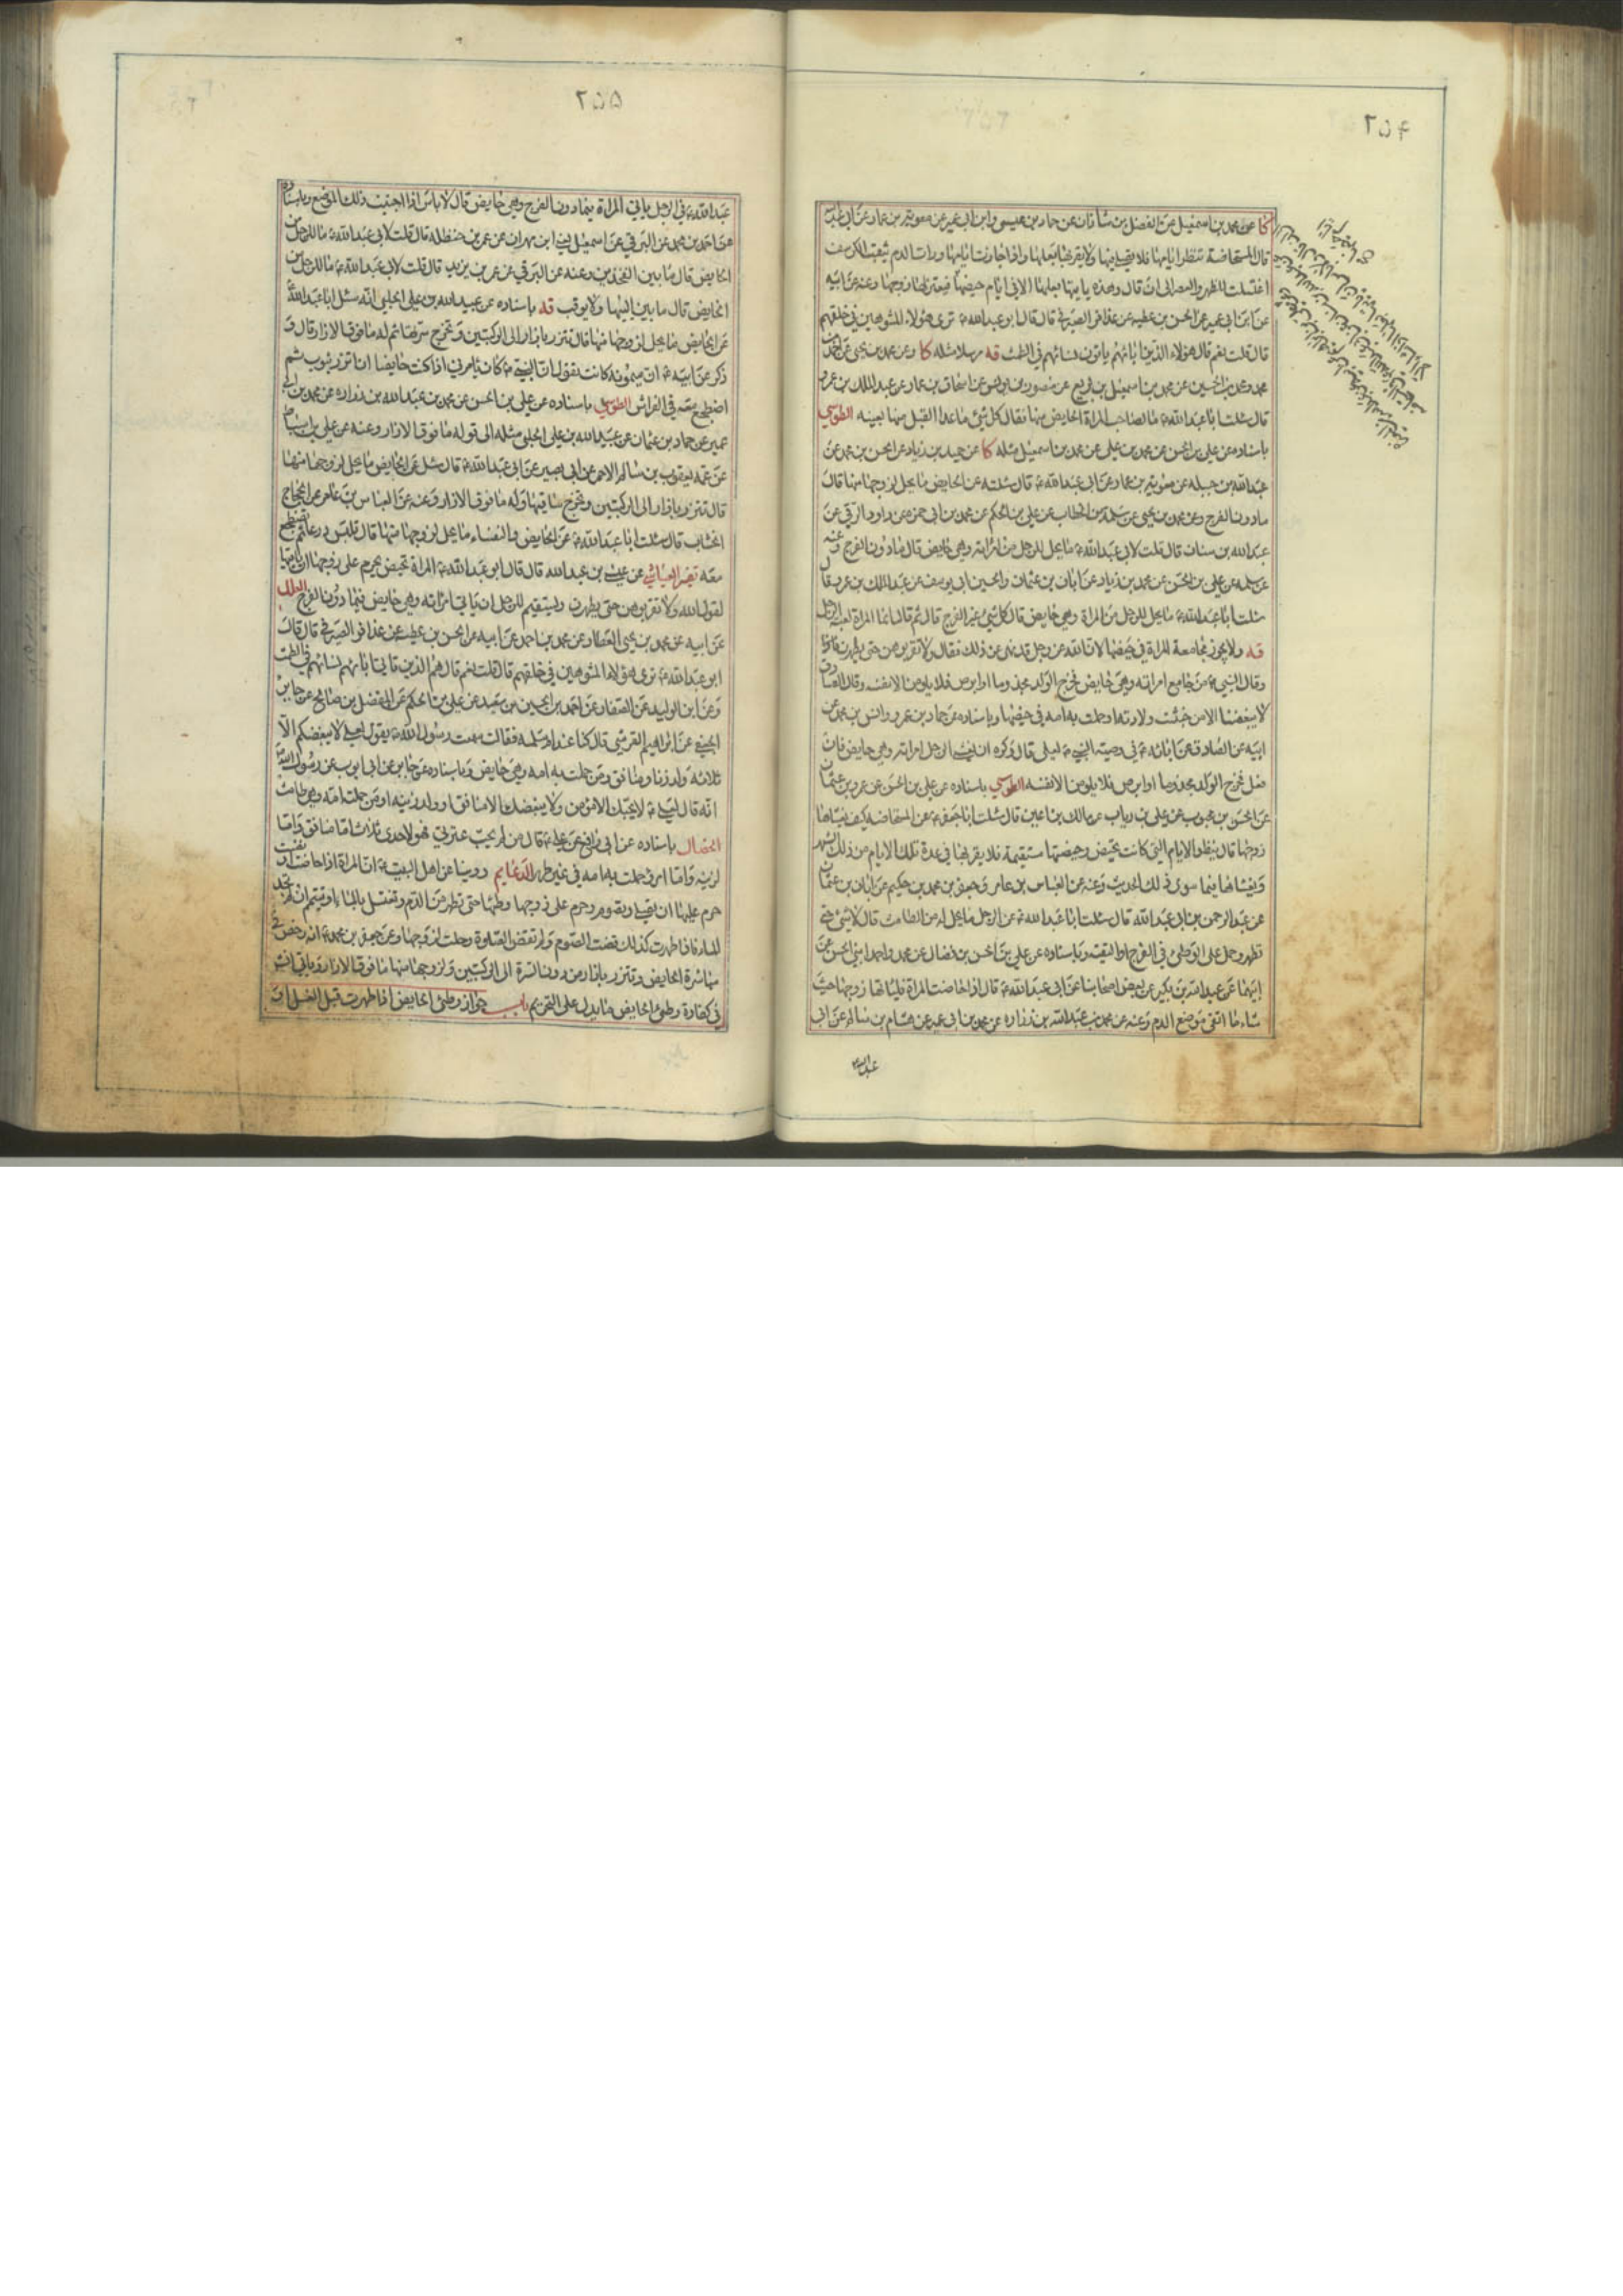 ٢٥٤
كا عن محمد بن اسمعيل عن الفضل بن شاذان عن حماد بن عيسى وابن ابى عمير عن معوية بن عمار عن ابى عبد الله
قال المستحاضة تنظر ايامها فلا تصلى فيها ولا يقربها بعلها واذا جازت ايامها ورات الدم يثقب الكرسف
اغتسلت للظهر والعصر الى ان قال وهذه ياتيها بعلها الا فى ايام حيضها فيعتزلها زوجها وعنه عن ابيه
عن ابن ابى عمير عن الحسن بن عطيه عن عذافر الصيرفى قال قال ابو عبد الله ع ترى هؤلاء المشوهين فى خلقهم
قال قلت نعم قال هؤلاء الذين اباؤهم ياتون نسائهم فى الطمث قه مرسلا مثله كا وعن محمد بن يحيى عن احمد بن
محمد ومحمد بن الحسين عن محمد بن اسمعيل بن بزيع عن منصور بن يونس عن اسحاق بن عمار عن عبد الملك بن عمرو
قال سئلت ابا عبد الله ع ما لصاحب المراة الحايض منها فقال كل شئ ما عدا القبل منها بعينه الطوسي
باسناده عن على بن الحسن عن محمد بن على عن محمد بن اسمعيل مثله كا عن حميد بن زياد عن الحسن بن محمد عن
عبد الله بن جبله عن معوية بن عمار عن ابى عبد الله ع قال سئلته عن الحايض ما يحل لزوجها منها قال
ما دون الفرج وعن محمد بن يحيى عن سلمة بن الخطاب عن على بن الحكم عن محمد بن ابى حمزه عن داود الرقى عن
عبد الله بن سنان قال قلت لابى عبد الله ع ما يحل للرجل من امراته وهى حايض قال ما دون الفرج وعنه
عن سلمه عن على بن الحسن عن محمد بن زياد عن ابان بن عثمان والحسين بن ابى يوسف عن عبد الملك بن عمرو قال
سئلت ابا عبد الله ع ما يحل للرجل من المراة وهى حايض قال كل شئ غير الفرج قال ثم قال انما المراة لعبة الرجل
قه ولا يجوز مجامعة المراة فى حيضها لان الله عز وجل قد نهى عن ذلك فقال ولا تقربوهن حتى يطهرن
وقال النبى ص من جامع امراته وهى حايض فخرج الولد مجذوما او ابرص فلا يلومن الا نفسه وقال الصادق
لا يبغضنا الا من خبثت ولادته او حملت به امه فى حيضها وباسناده عن حماد بن عمرو وانس بن محمد عن
ابيه عن الصادق عن ابائه ع فى وصية النبى ص لعلى قال وكره ان يغشى الرجل امراته وهى حايض فان
فعل فخرج الولد مجذوما او ابرص فلا يلومن الا نفسه الطوسي باسناده عن على بن الحسن عن عمرو بن عثمان
عن الحسن بن محبوب عن على بن رياب عن مالك بن اعين قال سئلت ابا جعفر ع عن المستحاضه كيف يغشاها
زوجها قال ينظر الايام التى كانت تحيض وحيضتها مستقيمة فلا يقربها فى عدة تلك الايام من ذلك الشهر
ويغشاها فيما سوى ذلك الحديث وعنه عن العباس بن عامر وجعفر بن محمد بن حكيم عن ابان بن عثمان
عن عبد الرحمن بن ابى عبد الله قال سئلت ابا عبد الله ع عن الرجل ما يحل له من الطامث قال لا شئ حتى
تطهر وحمل على الوطئ فى الفرج او التقيه وباسناده عن على بن الحسن بن فضال عن محمد واحمد ابنى الحسن عن
ابيهما عن عبد الله بن بكير عن بعض اصحابنا عن ابى عبد الله ع قال اذا حاضت المراة فلياتها زوجها حيث
شاء ما اتقى موضع الدم وعنه عن محمد بن عبد الله بن زراره عن محمد بن ابى عمير عن هشام بن سالم عن ابى
عبد الله
٢٥٥
عبد الله ع فى الرجل ياتى المراة فيما دون الفرج وهى حايض قال لا باس اذا اجتنب ذلك الموضع وباسناده
عن احمد بن محمد عن البرقى عن اسمعيل بن مهران عن عمر بن حنظله قال قلت لابى عبد الله ع ما للرجل من
الحايض قال ما بين الفخذين وعنه عن البرقى عن عمر بن يزيد قال قلت لابى عبد الله ع ما للرجل من
الحايض قال ما بين اليتيها ولا يوقب قه باسناده عن عبيد الله بن على الحلبى انه سئل ابا عبد الله
عن الحايض ما يحل لزوجها منها قال تتزر بازار الى الركبتين وتخرج سرتها ثم له ما فوق الازار قال و
ذكر عن ابيه ع ان ميمونه كانت تقول ان النبى ص كان يامرنى اذا كنت حايضا ان اتزر بثوب ثم
اضطجع معه فى الفراش الطوسي باسناده عن على بن الحسن عن محمد بن عبد الله بن زراره عن محمد بن ابى
عمير عن حماد بن عثمان عن عبيد الله بن على الحلبى مثله الى قوله ما فوق الازار وعنه عن على بن اسباط
عن عمه يعقوب بن سالم الاحمر عن ابى بصير عن ابى عبد الله ع قال سئل عن الحايض ما يحل لزوجها منها
قال تتزر بازار الى الركبتين وتخرج ساقيها وله ما فوق الازار وعنه عن العباس بن عامر عن حجاج
الخشاب قال سئلت ابا عبد الله ع عن الحايض والنفساء ما يحل لزوجها منها قال تلبس درعا ثم تضطجع
معه تفسير العياشي عن عيسى بن عبد الله قال قال ابو عبد الله ع المراة تحيض يحرم على زوجها ان ياتيها
لقول الله ولا تقربوهن حتى يطهرن ويستقيم للرجل ان ياتى امراته وهى حايض فيما دون الفرج العلل
عن ابيه عن محمد بن يحيى العطار عن محمد بن احمد عن ابيه عن الحسن بن عطيه عن عذافر الصيرفى قال قال
ابو عبد الله ع ترى هؤلاء المشوهين فى خلقهم قال قلت نعم قال هم الذين ياتى اباؤهم نسائهم فى الطمث
وعن ابن الوليد عن الصفار عن احمد بن الحسين بن سعيد عن على بن الحكم عن المفضل بن صالح عن جابر
الجعفى عن ابراهيم القرشى قال كنا عند ام سلمه فقالت سمعت رسول الله ص يقول لعلى لا يبغضكم الا
ثلاثه ولد زنا ومنافق ومن حملت به امه وهى حايض وباسناده عن جابر عن ابى ايوب عن رسول الله ص
انه قال لعلى ع لا يحبك الا مؤمن ولا يبغضك الا منافق او ولد زنيه او من حملته امه وهى طامث
الخصال باسناده عن ابى رافع عن على ع قال من لم يحب عترتى فهو لاحدى ثلاث اما منافق واما
لزنيه واما امرؤ حملت به امه فى غير طهر الدعايم روينا عن اهل البيت ع ان المراة اذا حاضت او نفست
حرم عليها ان تصلى وتصوم وحرم على زوجها وطئها حتى تطهر من الدم وتغتسل بالماء او تتيمم ان لم تجد
الماء فاذا طهرت كذلك قضت الصوم ولم تقض الصلوة وحلت لزوجها وعن جعفر بن محمد ع انه رخص فى
مباشرة الحايض وتتزر بازار من دون السرة الى الركبتين ولزوجها منها ما فوق الازار وياتى انشـ
فى كفارة وطئ الحايض ما يدل على التحريم باب جواز وطئ الحايض اذا طهرت قبل الغسل او